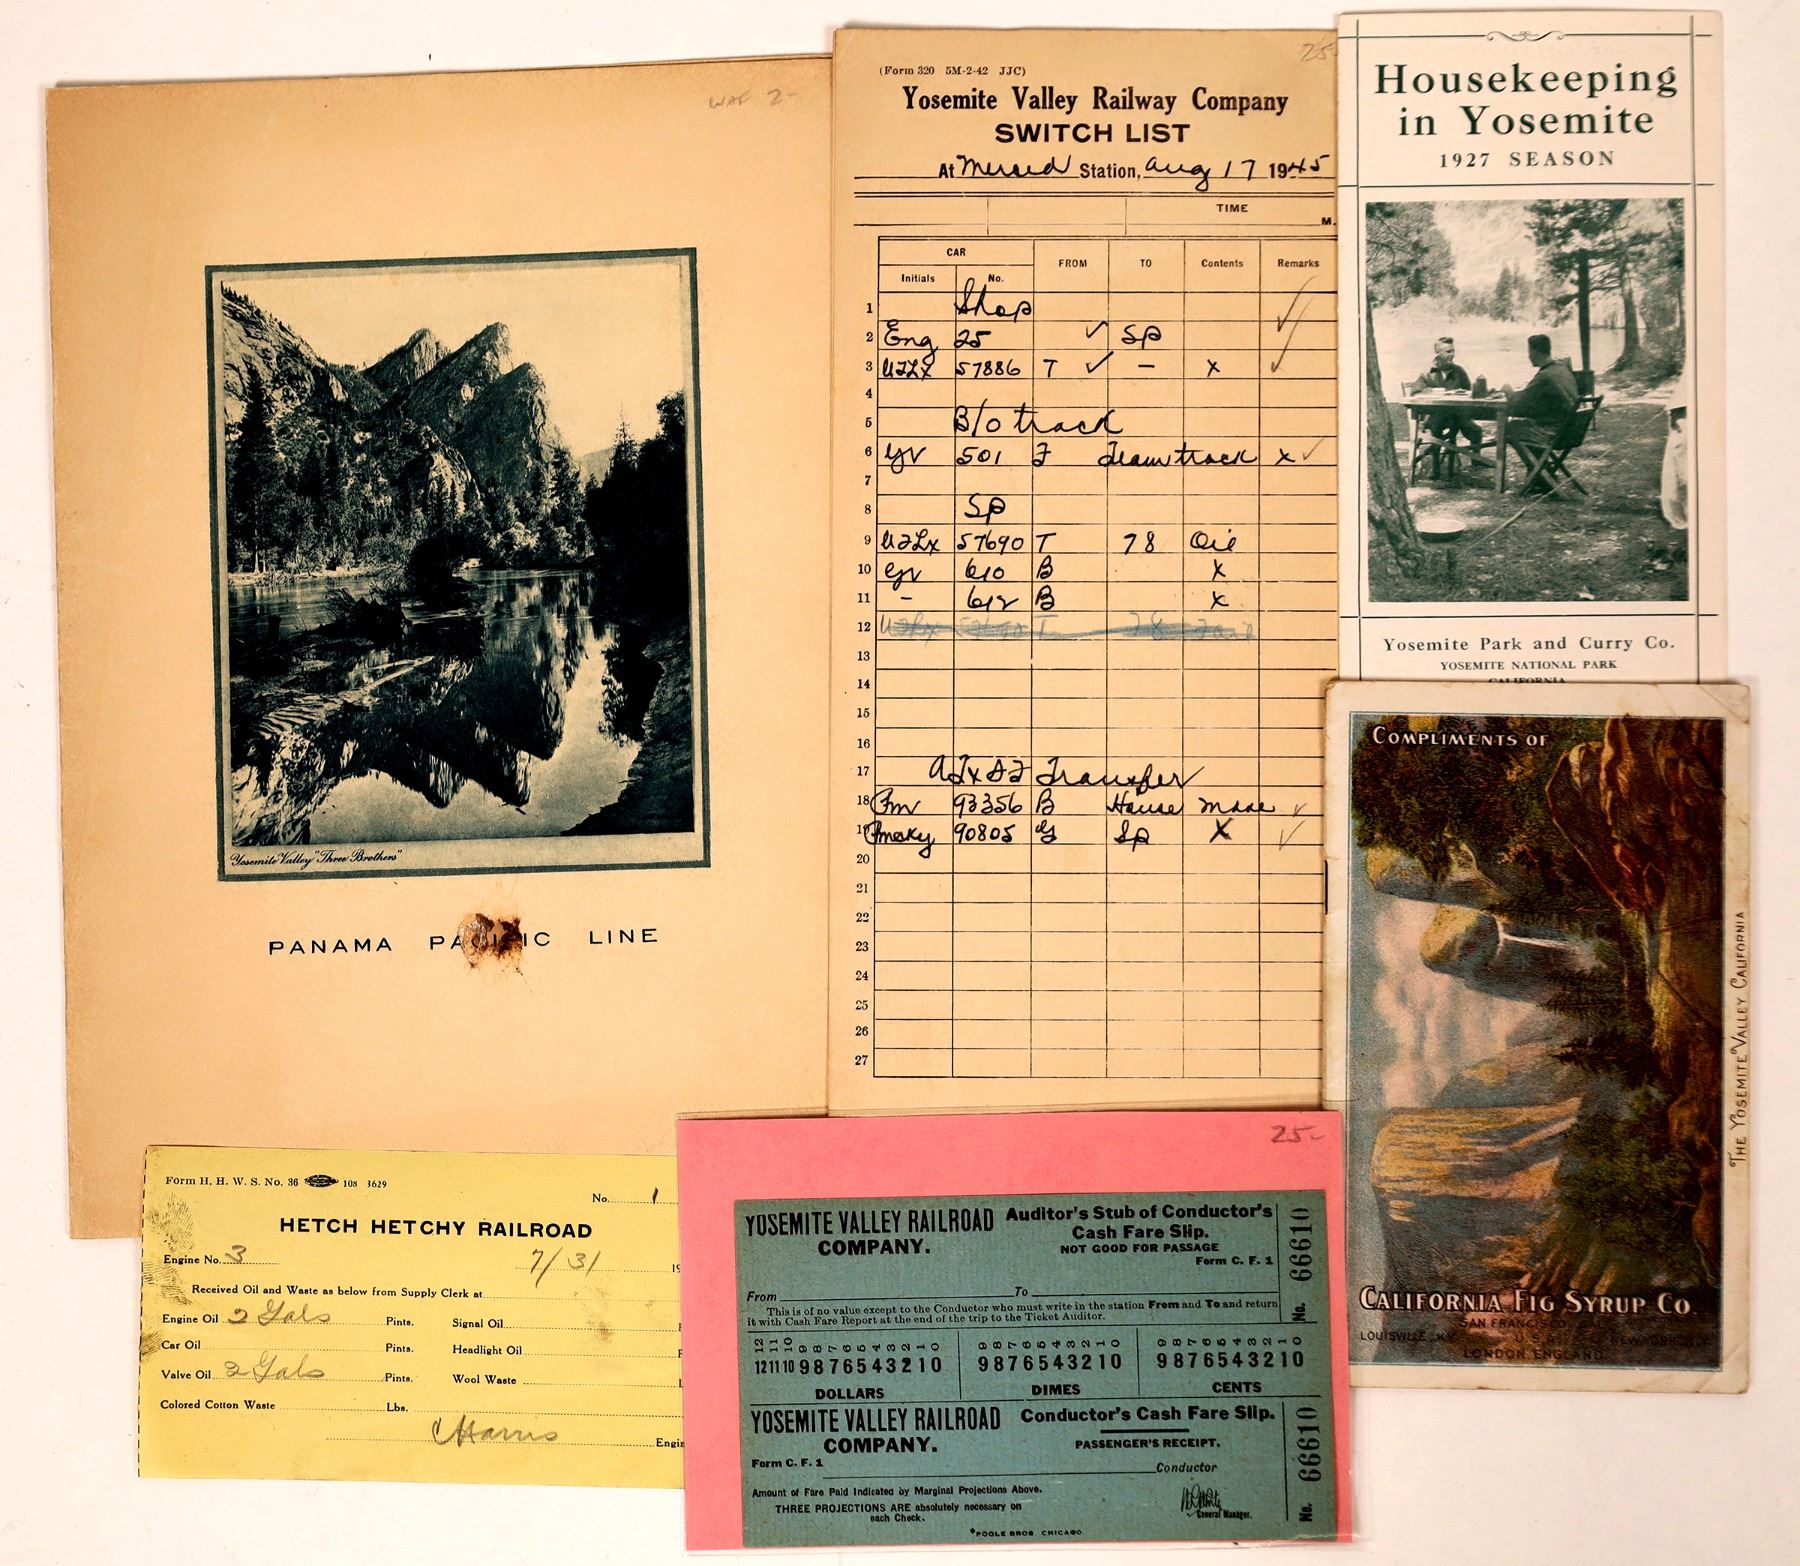 WAF 2-
Yosemite Valley "Three Brothers"
PANAMA PACIFIC LINE
25-
(Form 320 5M-2-42 JJC)
Yosemite Valley Railway Company
SWITCH LIST
At Merced Station, Aug 17 1945
TIME
M.
CAR FROM TO Contents Remarks
Initials No.
1 Shop
2 Eng 25 ✓ SP
3 UTLX 57886 T ✓ – x ✓
4
5 B/O track
6 YV 501 F Teamtrack x ✓
7
8 SP
9 UTLX 57690 T 78 Oil
10 YV 610 B x
11 - 612 B x
12
13
14
15
16
17 AT&SF Transfer
18 93356 B House ✓
19 90805 G SP X ✓
20
21
22
23
24
25
26
27
Housekeeping
in Yosemite
1927 SEASON
Yosemite Park and Curry Co.
YOSEMITE NATIONAL PARK
CALIFORNIA
COMPLIMENTS OF
CALIFORNIA FIG SYRUP CO.
SAN FRANCISCO, CAL.
LOUISVILLE, KY. U.S.A. NEW YORK, N.Y.
LONDON, ENGLAND
THE YOSEMITE VALLEY CALIFORNIA
Form H. H. W. S. No. 36 108 3629
No. 1
HETCH HETCHY RAILROAD
Engine No. 3 7/31 19
Received Oil and Waste as below from Supply Clerk at
Engine Oil 2 Gals Pints. Signal Oil
Car Oil Pints. Headlight Oil
Valve Oil 2 Gals Pints. Wool Waste
Colored Cotton Waste Lbs.
Harris Engin
25-
YOSEMITE VALLEY RAILROAD COMPANY.
Auditor's Stub of Conductor's
Cash Fare Slip.
NOT GOOD FOR PASSAGE
Form C. F. 1
No. 66610
From To
This is of no value except to the Conductor who must write in the station From and To and return
it with Cash Fare Report at the end of the trip to the Ticket Auditor.
12 11 10 9 8 7 6 5 4 3 2 1 0 9 8 7 6 5 4 3 2 1 0 9 8 7 6 5 4 3 2 1 0
12 11 10 9 8 7 6 5 4 3 2 1 0 9 8 7 6 5 4 3 2 1 0 9 8 7 6 5 4 3 2 1 0
DOLLARS DIMES CENTS
YOSEMITE VALLEY RAILROAD COMPANY.
Conductor's Cash Fare Slip.
PASSENGER'S RECEIPT.
Form C. F. 1
Conductor
No. 66610
Amount of Fare Paid Indicated by Marginal Projections Above.
THREE PROJECTIONS ARE absolutely necessary on
each Check.
General Manager.
POOLE BROS CHICAGO